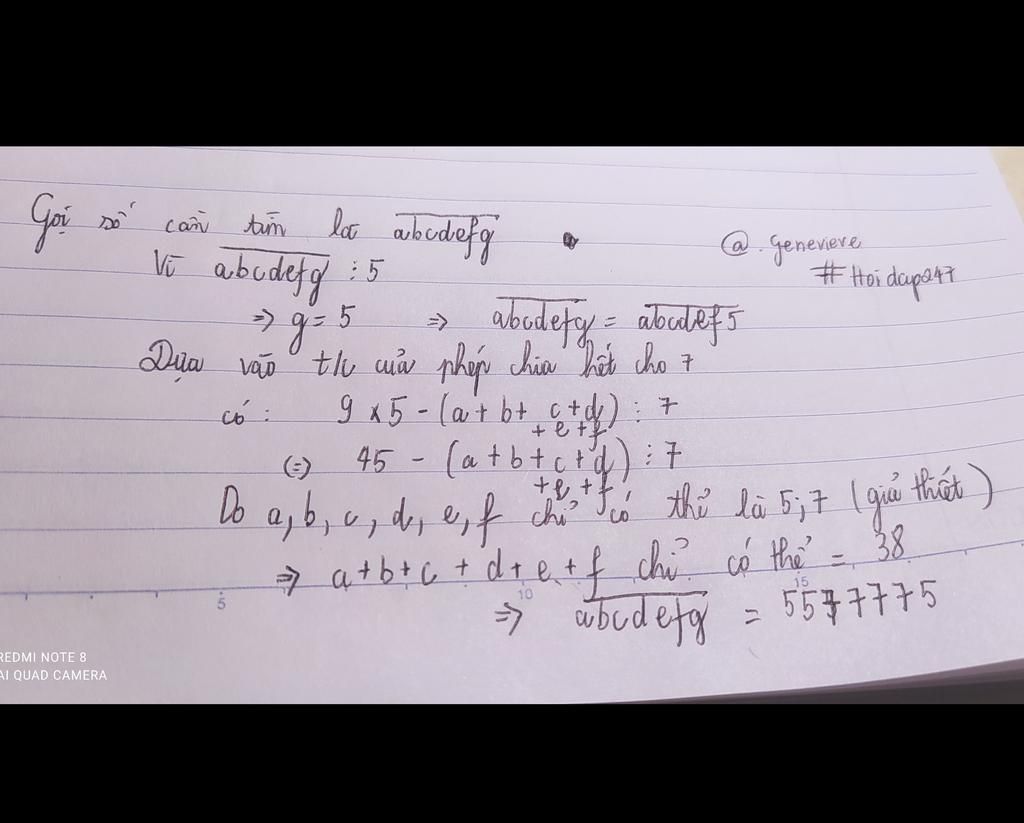 Gọi số cần tìm là abcdefg
@.Genevieve
#Hoidap247
Vì abcdefg ⋮ 5
=> g = 5 => abcdefg = abcdef5
Dựa vào t/c của phép chia hết cho 7
có: 9 x 5 - (a + b + c + d + e + f) ⋮ 7
(=) 45 - (a + b + c + d + e + f) ⋮ 7
Do a, b, c, d, e, f chỉ có thể là 5; 7 (giả thiết)
=> a + b + c + d + e + f chỉ có thể = 38
5 10 15
=> abcdefg = 5577775
REDMI NOTE 8
AI QUAD CAMERA